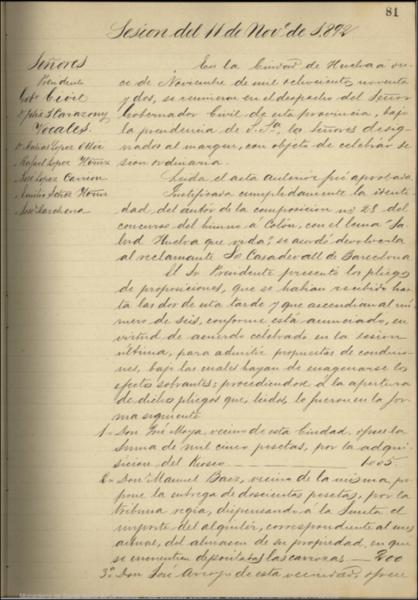 81
Sesion del 11 de Novᵉ de 1892
Señores
Presidente
Gobr Civil
Vocales.
Rafael Lopez
José Lopez Carrion
José Marchena
En la Ciudad de Huelva á on-
ce de Noviembre de mil ochocientos noventa
y dos, se reunieron en el despacho del Señor
Gobernador Civil de esta provincia, bajo
la presidencia de S. Sª, los Señores desig-
nados al margen, con objeto de celebrar se-
sion ordinaria.
Leida el acta anterior fué aprobada
Justificada cumplidamente la identi-
dad, del autor de la composicion nº 28 del
concurso del himno á Colón, con el lema "Sa-
lud Huelva que" se acordó devolverla
al reclamante Sr Casadevall de Barcelona
El Sr Presidente presentó los pliegos
de proposiciones, que se habian recibido has-
ta las dos de esta tarde y que ascendian al nú-
mero de seis, conforme está anunciado, en
virtud de acuerdo celebrado en la sesion
última, para admitir propuestas de condicio-
nes, bajo las cuales hayan de enagenarse los
efectos sobrantes; procediendose á la apertura
de dichos pliegos que, leidos, lo fueron en la for-
ma siguiente
1.- Don José Moya, vecino de esta Ciudad, ofrece la
suma de mil cinco pesetas, por la adqui-
sicion del Kiosco 1005
2.- Don Manuel Baez, vecino de la misma, pro-
pone la entrega de doscientas pesetas, por la
tribuna regia, dispensando á la Junta el
importe del alquiler, correspondiente al mes
actual, del almacen de su propiedad, en que
se encuentran depositadas las carrozas 200
3.ª Don José Arroyo de esta vecindad, ofrece